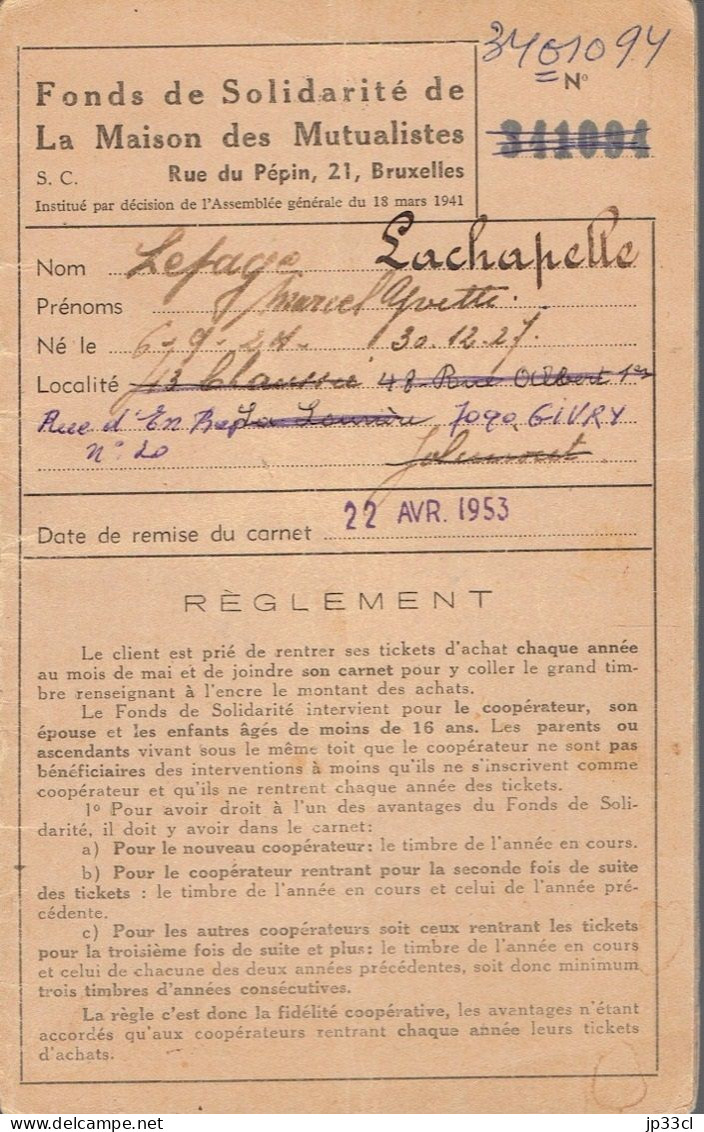 3401094
Fonds de Solidarité de
La Maison des Mutualistes
S. C. Rue du Pépin, 21, Bruxelles
Institué par décision de l'Assemblée générale du 18 mars 1941
N°
341094
Nom Lefage Lachapelle
Prénoms Marcel Yvette.
Né le 6-9-24- 30.12.27.
Localité 43 Chaussée 48 Rue Albert 1er
Rue d'En La Louvière 7090 GIVRY
N° 20 Jolimont
Date de remise du carnet 22 AVR. 1953
RÈGLEMENT
Le client est prié de rentrer ses tickets d'achat chaque année
au mois de mai et de joindre son carnet pour y coller le grand tim-
bre renseignant à l'encre le montant des achats.
Le Fonds de Solidarité intervient pour le coopérateur, son
épouse et les enfants âgés de moins de 16 ans. Les parents ou
ascendants vivant sous le même toit que le coopérateur ne sont pas
bénéficiaires des interventions à moins qu'ils ne s'inscrivent comme
coopérateur et qu'ils ne rentrent chaque année des tickets.
1° Pour avoir droit à l'un des avantages du Fonds de Soli-
darité, il doit y avoir dans le carnet:
a) Pour le nouveau coopérateur: le timbre de l'année en cours.
b) Pour le coopérateur rentrant pour la seconde fois de suite
des tickets : le timbre de l'année en cours et celui de l'année pré-
cédente.
c) Pour les autres coopérateurs soit ceux rentrant les tickets
pour la troisième fois de suite et plus: le timbre de l'année en cours
et celui de chacune des deux années précédentes, soit donc minimum
trois timbres d'années consécutives.
La règle c'est donc la fidélité coopérative, les avantages n'étant
accordés qu'aux coopérateurs rentrant chaque année leurs tickets
d'achats.
delcampe.net
jp33cl